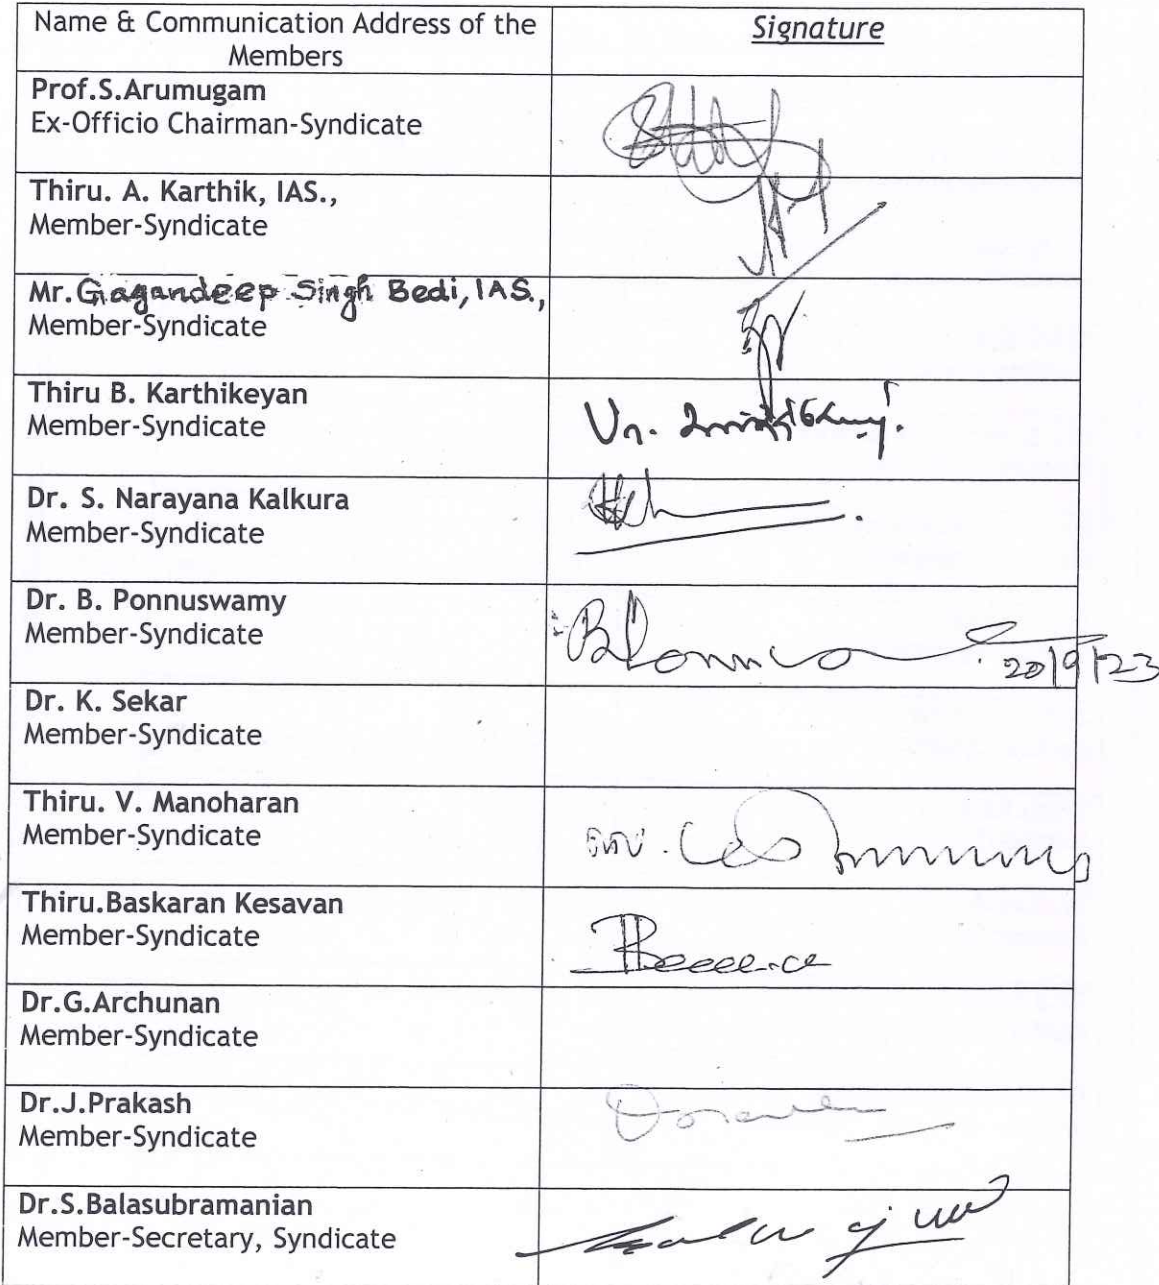 Name & Communication Address of the
Members
Signature
Prof.S.Arumugam
Ex-Officio Chairman-Syndicate
Thiru. A. Karthik, IAS.,
Member-Syndicate
Mr. Gagandeep Singh Bedi, IAS.,
Member-Syndicate
Thiru B. Karthikeyan
Member-Syndicate
Dr. S. Narayana Kalkura
Member-Syndicate
Dr. B. Ponnuswamy
Member-Syndicate
20/9/23
Dr. K. Sekar
Member-Syndicate
Thiru. V. Manoharan
Member-Syndicate
Thiru.Baskaran Kesavan
Member-Syndicate
Dr.G.Archunan
Member-Syndicate
Dr.J.Prakash
Member-Syndicate
Dr.S.Balasubramanian
Member-Secretary, Syndicate